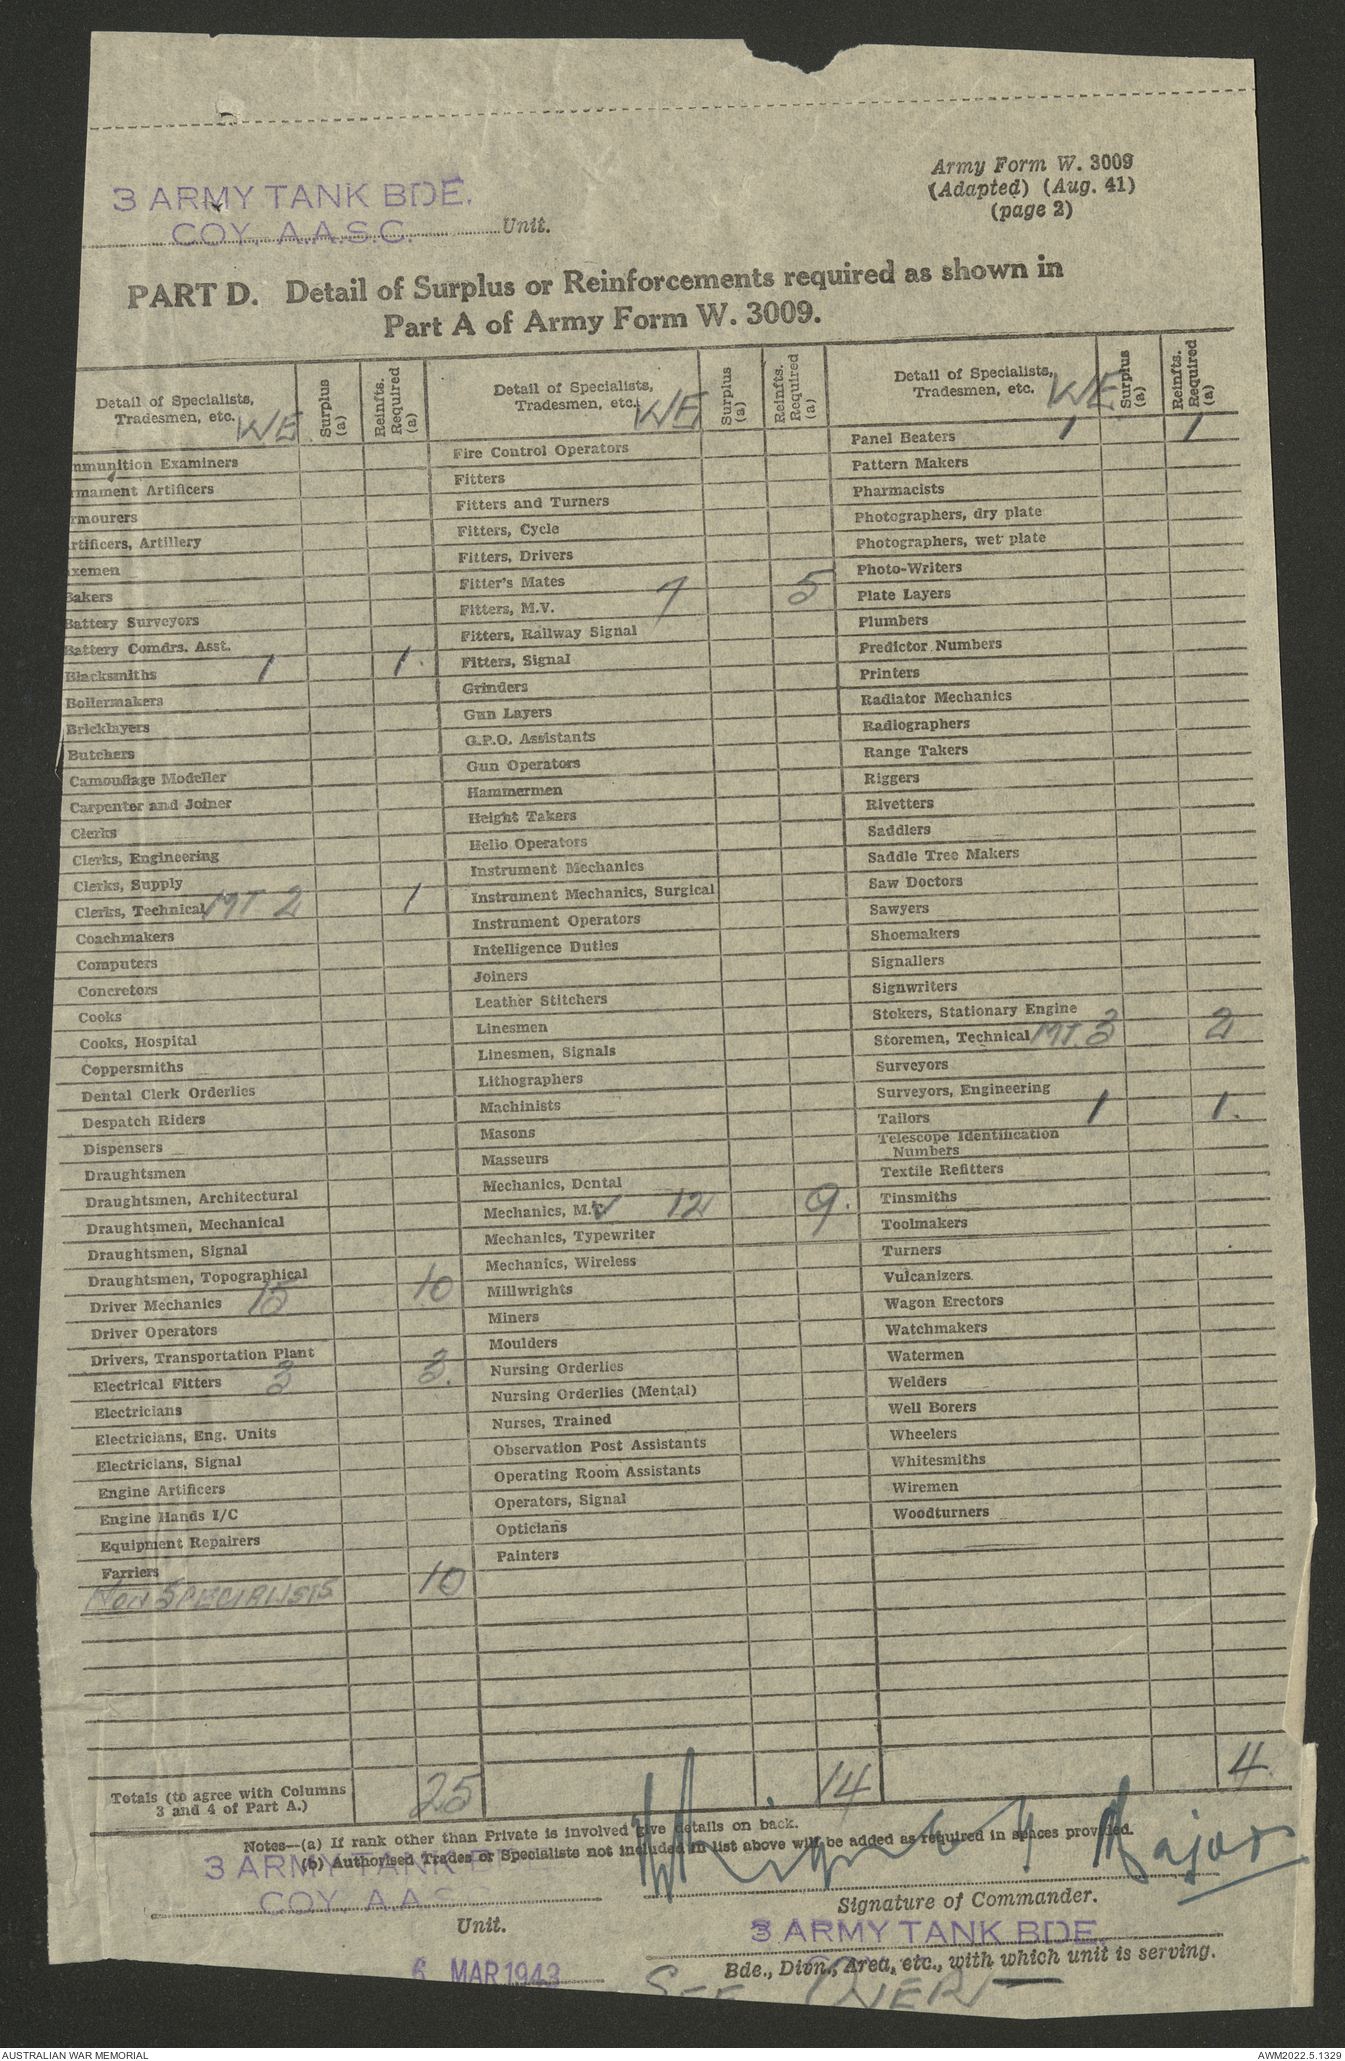 3 ARMY TANK BDE.
COY. A.A.S.C. Unit.
Army Form W. 3009
(Adapted) (Aug. 41)
(page 2)
PART D. Detail of Surplus or Reinforcements required as shown in
Part A of Army Form W. 3009.
Detail of Specialists, Tradesmen, etc. WE Surplus (a) Reinfts. Required (a)
mmunition Examiners
rmament Artificers
rmourers
rtificers, Artillery
xemen
Bakers
Battery Surveyors
Battery Comdrs. Asst.
Blacksmiths 1 1.
Boilermakers
Bricklayers
Butchers
Camouflage Modeller
Carpenter and Joiner
Clerks
Clerks, Engineering
Clerks, Supply
Clerks, Technical MT 2 1
Coachmakers
Computers
Concretors
Cooks
Cooks, Hospital
Coppersmiths
Dental Clerk Orderlies
Despatch Riders
Dispensers
Draughtsmen
Draughtsmen, Architectural
Draughtsmen, Mechanical
Draughtsmen, Signal
Draughtsmen, Topographical
Driver Mechanics 15 10
Driver Operators
Drivers, Transportation Plant
Electrical Fitters 3 3.
Electricians
Electricians, Eng. Units
Electricians, Signal
Engine Artificers
Engine Hands I/C
Equipment Repairers
Farriers
NON SPECIALISTS 10
Totals (to agree with Columns
3 and 4 of Part A.) 25
Detail of Specialists, Tradesmen, etc. WE Surplus (a) Reinfts. Required (a)
Fire Control Operators
Fitters
Fitters and Turners
Fitters, Cycle
Fitters, Drivers
Fitter's Mates
Fitters, M.V. 7 5
Fitters, Railway Signal
Fitters, Signal
Grinders
Gun Layers
G.P.O. Assistants
Gun Operators
Hammermen
Height Takers
Helio Operators
Instrument Mechanics
Instrument Mechanics, Surgical
Instrument Operators
Intelligence Duties
Joiners
Leather Stitchers
Linesmen
Linesmen, Signals
Lithographers
Machinists
Masons
Masseurs
Mechanics, Dental
Mechanics, M.V 12 9.
Mechanics, Typewriter
Mechanics, Wireless
Millwrights
Miners
Moulders
Nursing Orderlies
Nursing Orderlies (Mental)
Nurses, Trained
Observation Post Assistants
Operating Room Assistants
Operators, Signal
Opticians
Painters
14
Detail of Specialists, Tradesmen, etc. WE Surplus (a) Reinfts. Required (a)
Panel Beaters 1 1
Pattern Makers
Pharmacists
Photographers, dry plate
Photographers, wet plate
Photo-Writers
Plate Layers
Plumbers
Predictor Numbers
Printers
Radiator Mechanics
Radiographers
Range Takers
Riggers
Rivetters
Saddlers
Saddle Tree Makers
Saw Doctors
Sawyers
Shoemakers
Signallers
Signwriters
Stokers, Stationary Engine
Storemen, Technical MT. 3 2
Surveyors
Surveyors, Engineering
Tailors 1 1.
Telescope Identification
Numbers
Textile Refitters
Tinsmiths
Toolmakers
Turners
Vulcanizers
Wagon Erectors
Watchmakers
Watermen
Welders
Well Borers
Wheelers
Whitesmiths
Wiremen
Woodturners
4.
Notes—(a) If rank other than Private is involved give details on back.
(b) Authorised Trades or Specialists not included in list above will be added as required in spaces provided.
Major
3 ARMY TANK
COY. A.A.S.
Unit.
Signature of Commander.
3 ARMY TANK BDE.
Bde., Divn., Area, etc., with which unit is serving.
6 MAR 1943
SEE OVER
AUSTRALIAN WAR MEMORIAL
AWM2022.5.1329